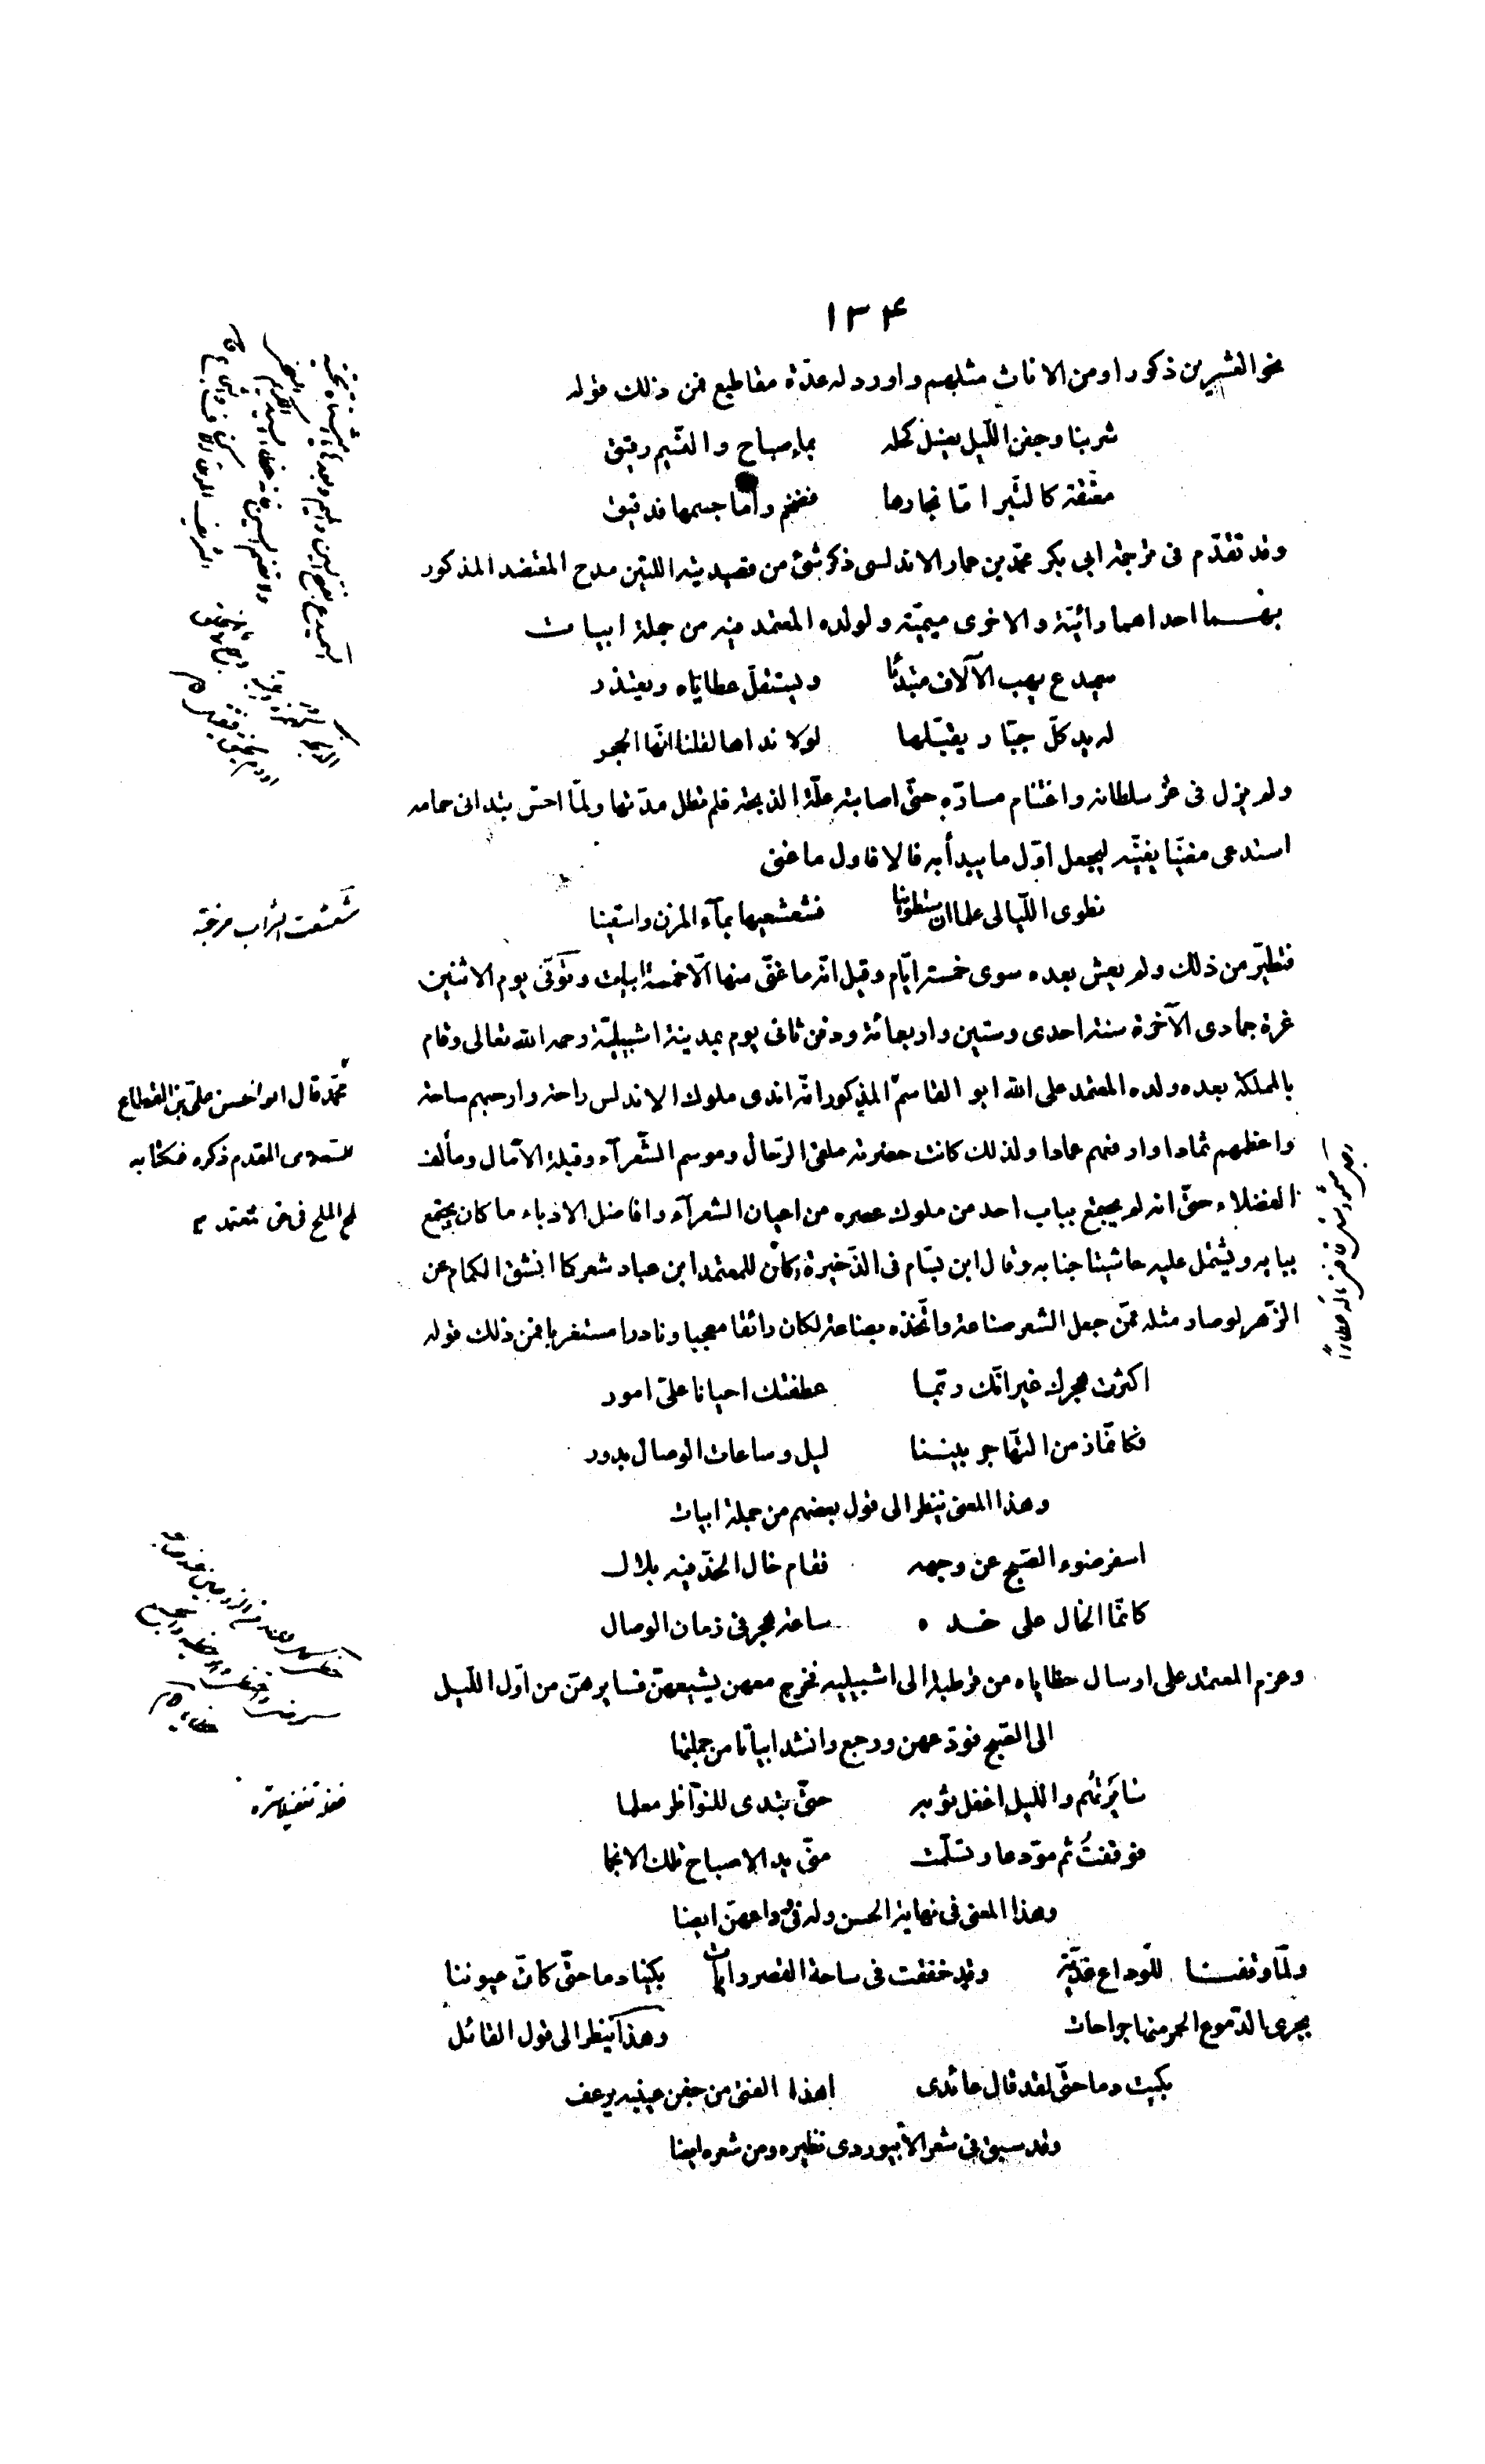 ١٣۴
نحو العشرين ذكورا ومن الاناث مثلهم واورد له عدّة مقاطيع فمن ذلك قوله
شربنا وجفن اللّيل يغسل كحله بماء صباح والنّسيم رقيق
معتّقة كالتّبر امّا نجارها فضخم وامّا جسمها فدقيق
وقد تقدّم فى ترجمة ابى بكر محمّد بن عمار الاندلسى ذكر شئ من قصيدتيه اللتين مدح المعتضد المذكور
بهما احداهما رائيّة والاخرى ميميّة ولولده المعتمد فيه من جملة ابيات
سميدع يهب الآلاف مبتدئا ويستقلّ عطاياه ويعتذر
له يد كلّ جبّار يقبّلها لولا نداها لقلنا انّها الحجر
ولم يزل فى عز سلطانه واغتنام مسارّه حتّى اصابته علّة الذبحة فلم تطل مدّتها ولمّا احسّ بتدانى حمامه
استدعى مغنّيا يغنّيه ليجعل اوّل ما يبدأ به فالا فاول ما غنى
نطوى اللّيالى علما ان ستطوينا فشعشعيها بمآء المزن واسقينا
شعشعت الشراب مزجته
فتطيّر من ذلك ولم يعش بعده سوى خمسة ايّام وقيل انّه ما غنّى منها الّا خمسة ابيات وتوفّى يوم الاثنين
غرة جمادى الآخرة سنة احدى وستين واربعمائة ودفن ثانى يوم بمدينة اشبيليّة رحمه الله تعالى وقام
بالمملكة بعده ولده المعتمد على الله ابو القاسم المذكور انّه اندى ملوك الاندلس راحة وارحبهم ساحة
محمّد قال ابو الحسن علىّ بن القطاع
واعظمهم ثمادا وارفعهم عمادا ولذلك كانت حضرته ملقى الرّحال وموسم الشّعرآء وقبلة الآمال ومألف
السعدى المقدم ذكره فى كتابه
الفضلاء حتّى انه لم يجتمع بباب احد من ملوك عصره من اعيان الشعرآء وافاضل الادباء ما كان يجتمع
لمح الملح فى حق المعتمد
ببابه ويشتمل عليه حاشيتا جنابه وقال ابن بسّام فى الذّخيرة وكان للمعتمد ابن عباد شعر كما انشق الكمام عن
الزّهر لو صار مثله ممّن جعل الشعر صناعة واتّخذه بضاعة لكان رائقا معجبا ونادرا مستغربا فمن ذلك قوله
اكثرت هجرك غير انّك ربّما عطفتك احيانا علىّ امور
فكانّما زمن التّهاجر بيننا ليل وساعات الوصال بدور
وهذا المعنى ينظر الى قول بعضهم من جملة ابيات
اسفر ضوء الصّبح عن وجهه فقام خال الخدّ فيه بلال
كانّما الخال على خده ساعة هجر فى زمان الوصال
وعزم المعتمد على ارسال حظاياه من قرطبة الى اشبيلية فخرج معهن يشيعهنّ فسايرهنّ من اوّل اللّيل
الى الصّبح فودّعهن ورجع وانشد ابياتا من جملتها
سايرتهم واللّيل اغفل ثوبه حتّى تبّدى للنّواظر معلما
فوقفت ثم مودّعا وتسلّمت منّى يد الاصباح تلك الانجما
وهذا المعنى فى نهاية الحسن وله فى وداعهنّ ايضا
ولمّا وقفنا للوداع غديّة وقد خفقت فى ساحة القصر رايات بكينا دما حتّى كانّ عيوننا
بجرى الدّموع الحمر منها جراحات وهذا ينظر الى قول القائل
بكيت دما حتّى لقد قال عائدى اهذا الفتى من جفن عينيه يرعف
وقد سبق فى شعر الأبيوردى نظيره ومن شعره ايضا